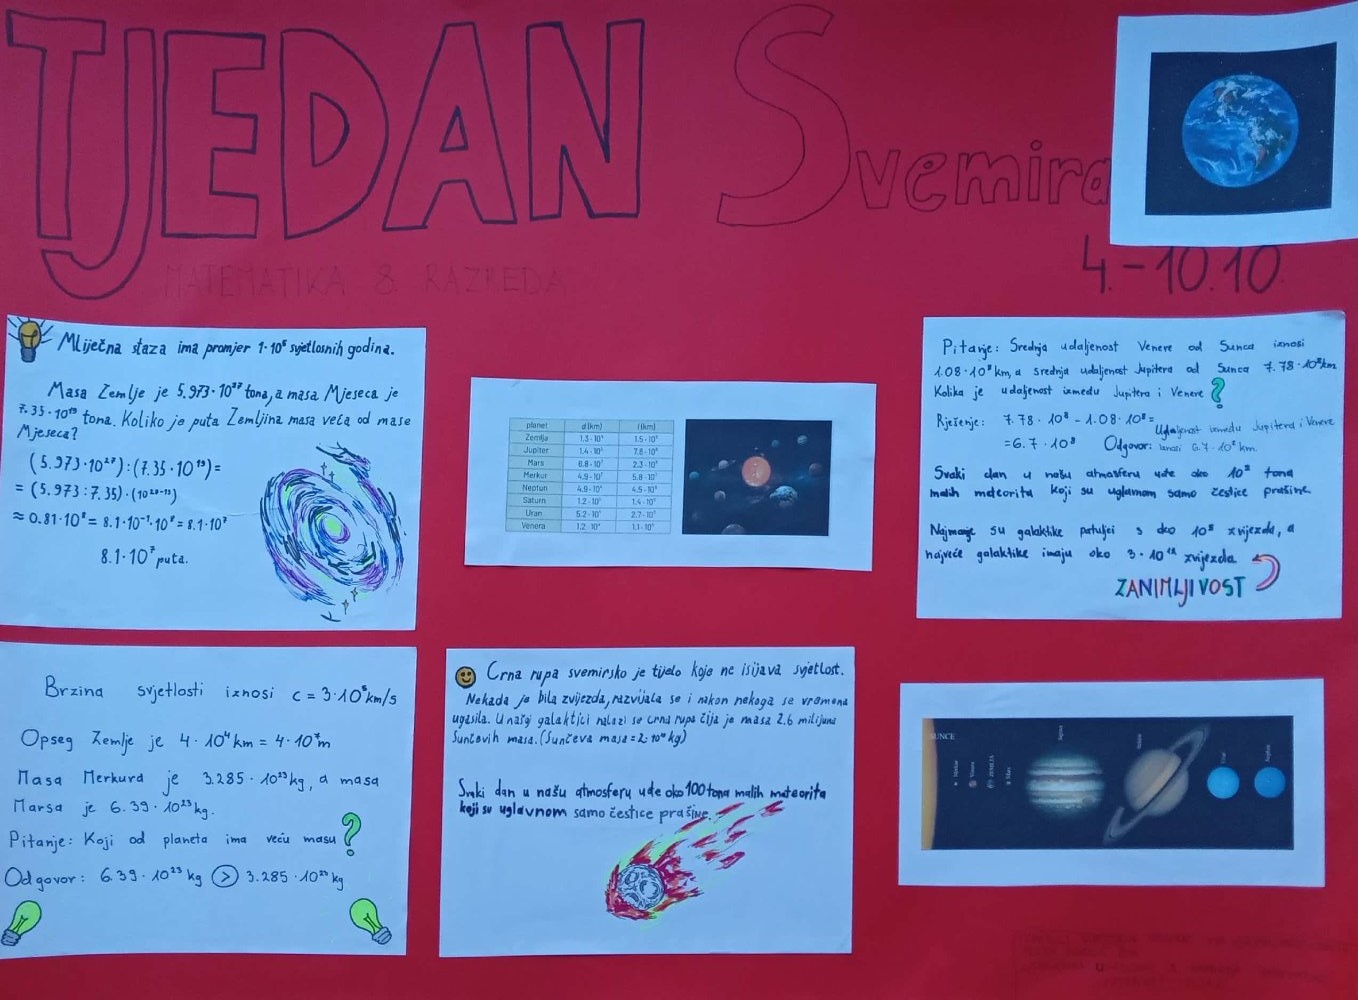 TJEDAN Svemira
4.-10.10.
MATEMATIKA 8 RAZREDA
Mliječna staza ima promjer 1·10⁵ svjetlosnih godina.
Masa Zemlje je 5.973·10²⁷ tona, a masa Mjeseca je
7.35·10¹⁹ tona. Koliko je puta Zemljina masa veća od mase
Mjeseca?
(5.973·10²⁷):(7.35·10¹⁹)=
= (5.973:7.35)·(10²⁷⁻¹⁹)
≈ 0.81·10⁸ = 8.1·10⁻¹·10⁸ = 8.1·10⁷
8.1·10⁷ puta.
planet d(km) r(km)
Zemlja 1.3·10⁴ 1.5·10⁸
Jupiter 1.4·10⁵ 7.8·10⁸
Mars 6.8·10³ 2.3·10⁸
Merkur 4.9·10³ 5.8·10⁷
Neptun 4.9·10⁴ 4.5·10⁹
Saturn 1.2·10⁵ 1.4·10⁹
Uran 5.2·10⁴ 2.7·10⁹
Venera 1.2·10⁴ 1.1·10⁸
Pitanje: Srednja udaljenost Venere od Sunca iznosi
1.08·10⁸ km, a srednja udaljenost Jupitera od Sunca 7.78·10⁸ km
Kolika je udaljenost između Jupitera i Venere?
Rješenje: 7.78·10⁸ - 1.08·10⁸ =
= 6.7·10⁸ Odgovor: Udaljenost između Jupitera i Venere
iznosi 6.7·10⁸ km.
Svaki dan u našu atmosferu uđe oko 10² tona
malih meteorita koji su uglavnom samo čestice prašine.
Najmanje su galaktike patuljci s oko 10⁸ zvijezda, a
najveće galaktike imaju oko 3·10¹² zvijezda.
ZANIMLJIVOST
Brzina svjetlosti iznosi c = 3·10⁵ km/s
Opseg Zemlje je 4·10⁴ km = 4·10⁷ m
Masa Merkura je 3.285·10²³ kg, a masa
Marsa je 6.39·10²³ kg.
Pitanje: Koji od planeta ima veću masu?
Odgovor: 6.39·10²³ kg > 3.285·10²³ kg
Crna rupa svemirsko je tijelo koje ne isijava svjetlost.
Nekada je bila zvijezda, razvijala se i nakon nekoga se vremena
ugasila. U našoj galaktici nalazi se crna rupa čija je masa 2.6 milijuna
Sunčevih masa. (Sunčeva masa=2·10³⁰ kg)
Svaki dan u našu atmosferu uđe oko 100 tona malih meteorita
koji su uglavnom samo čestice prašine.
SUNCE
Merkur
Venera
ZEMLJA
Mars
Jupiter
Saturn
Uran
Neptun